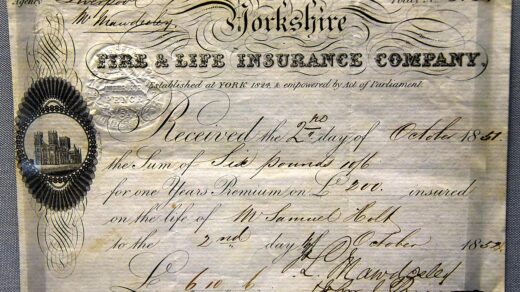 Agency Liverpool
Mr Mawdesley
Yorkshire
FIRE & LIFE INSURANCE COMPANY,
Established at YORK 1824, & empowered by Act of Parliament.
Received the 2nd day of October 1851
the Sum of Six pounds 10/6
for one Years Premium on L 200. insured
on the life of Mr Samuel Holt
to the 2nd day of October 1852
L 6 10 6 L. Mawdesley